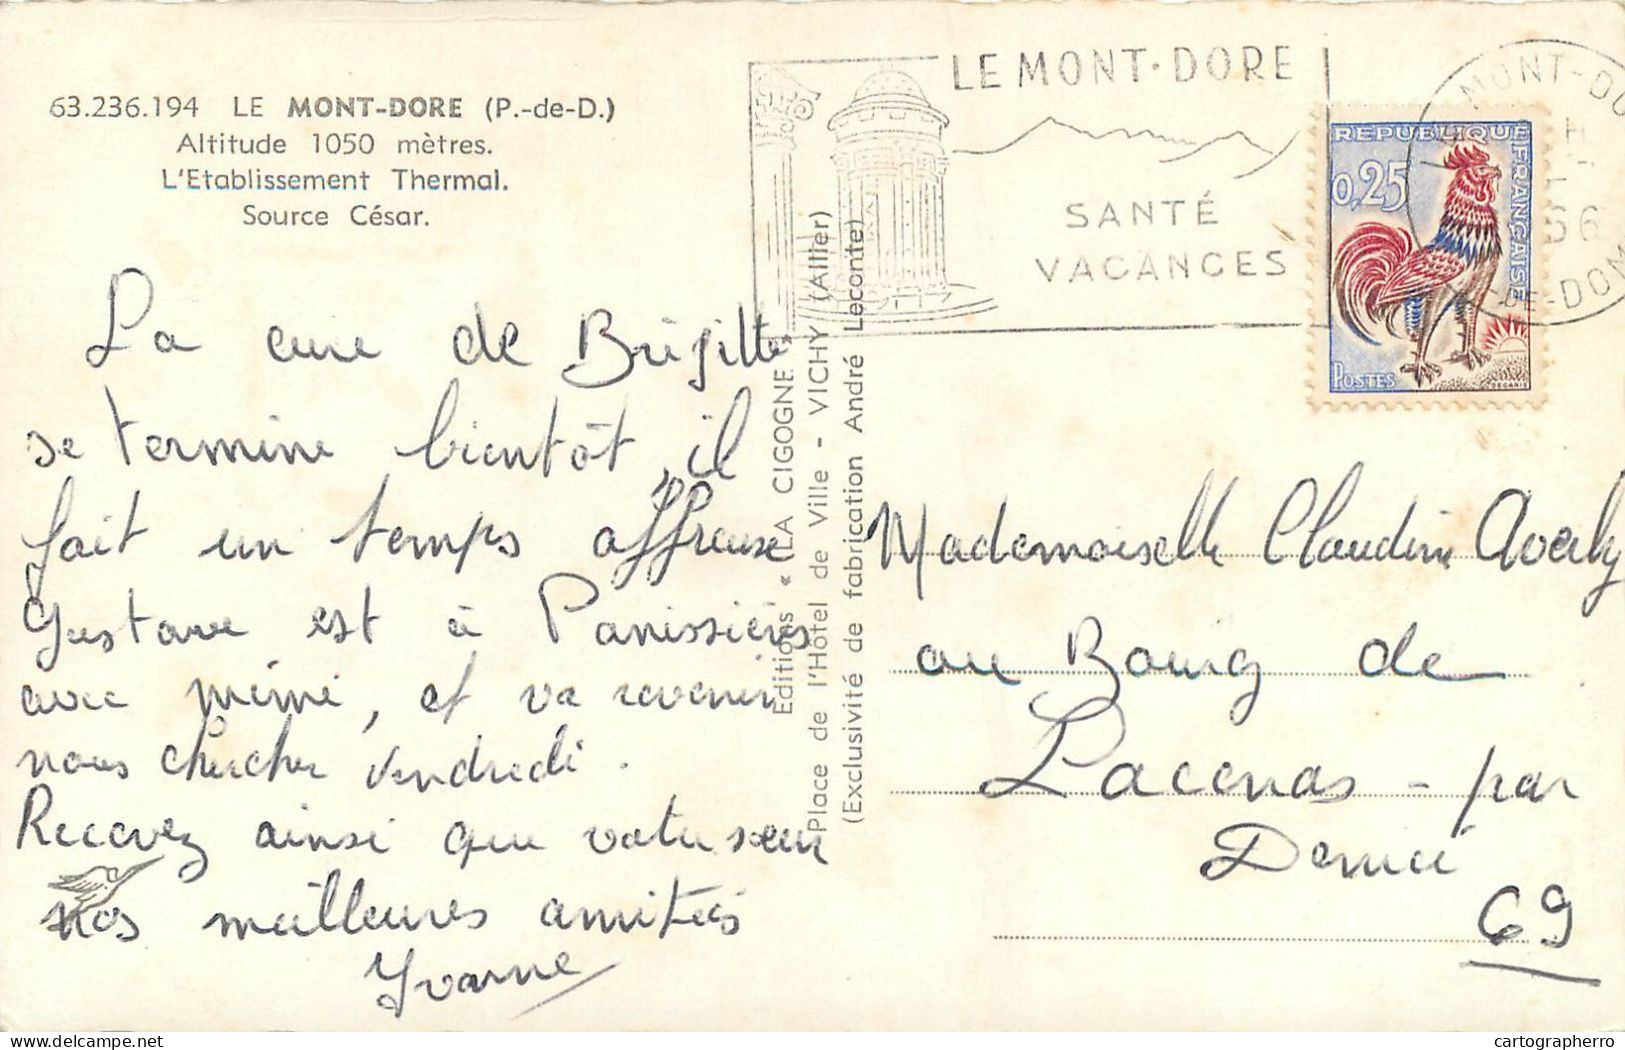 63.236.194 LE MONT-DORE (P.-de-D.)
Altitude 1050 mètres.
L'Etablissement Thermal.
Source César.
La cure de Brigitte
se termine bientôt, il
fait un temps affreuse
Gustave est à Panissières
avec mémé, et va revenir
nous chercher vendredi.
Recevez ainsi que votre sœur
nos meilleures amitiés
Yvonne
Editions « LA CIGOGNE »
Place de l'Hôtel de Ville - VICHY (Allier)
(Exclusivité de fabrication André Leconte)
LE MONT-DORE
SANTÉ
VACANCES
MONT-DO
-DE-DOM
REPUBLIQUE FRANÇAISE
0,25
POSTES
DECARIS
Mademoiselle Claudine Averly
au Bourg de
Lacenas - par
Denicé
69
cartographerro